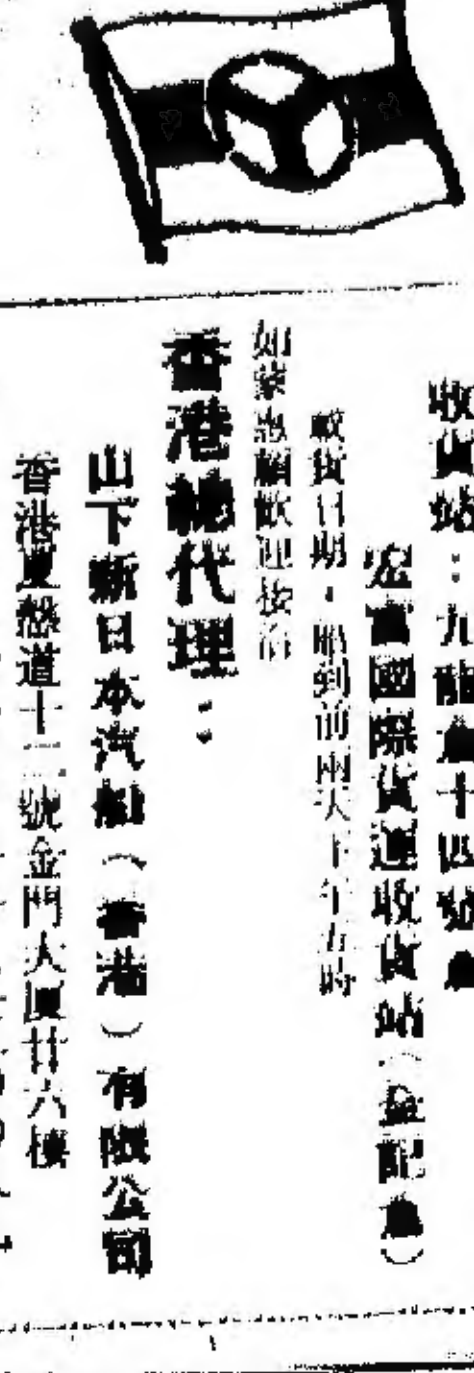 收貨站：九龍倉十四號倉
宏富國際貨運收貨站（益記倉）
截貨日期：船到前兩天下午五時
如蒙惠顧歡迎接洽
香港總代理：
山下新日本汽船（香港）有限公司
香港夏慤道十二號金門大厦廿六樓